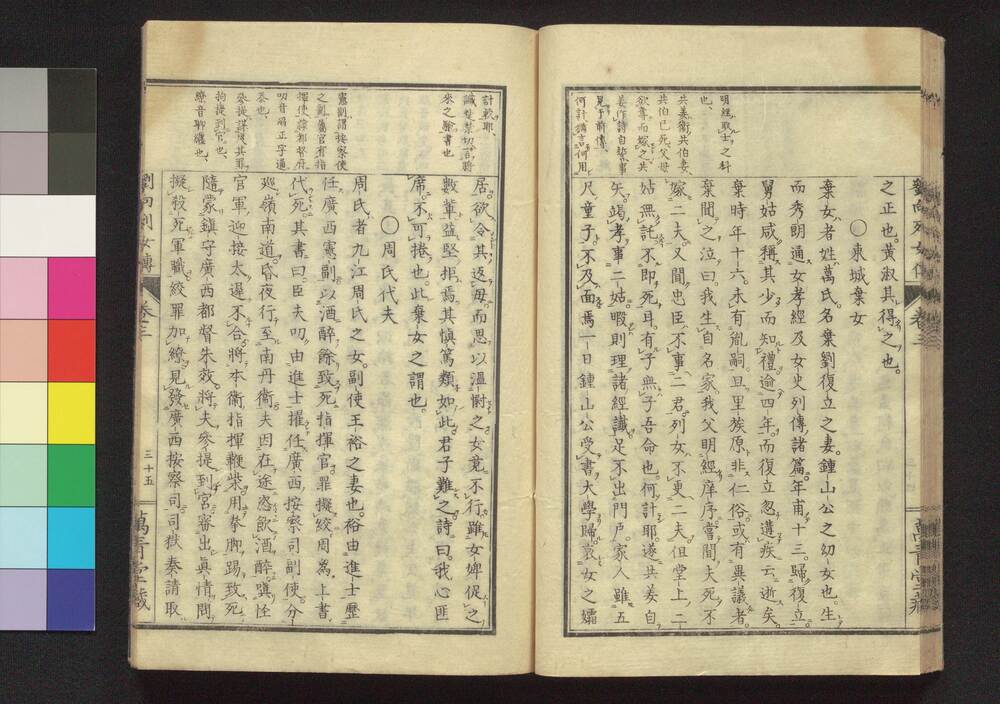 之正也。黃淑其得之也。
〇東城棄女
棄女者姓萬氏。名棄劉復立之妻。鍾山公之幼女也。生
而秀朗通女孝經及女史列傳諸篇。年甫十三。歸復立。
舅姑咸稱其少而知禮。逾四年。而復立忽遘疾云逝矣。
棄時年十六。未有胤嗣。且里族原非仁俗。或有異議者。
棄聞之泣曰。我生自名家。我父明經庠序。嘗聞夫死不
嫁二夫。又聞忠臣不事二君。列女不更二夫。但堂上二
姑無託。不即死耳。有子無子吾命也。何計耶。遂共姜自
矢。竭孝事二姑。暇則理諸經識。足不出門戶。家人雖五
尺童子。不及面焉。一日鍾山公受書大學歸。哀女之孀
明經取士之科
也、
共姜衛共伯妻
共伯已死父母
欲奪而嫁之共
姜作詩自誓事
見于前傳、
何計猶言何用
計較耶、
識楚禁切音讖
來之驗書也
憲副謂按察使
之副屬官有指
揮使
叨音滔正字通
忝也、
參提
拘提到官也、
繚音聊纏也、
居。欲令其返毋。而思以溫慰之。女竟不行。雖女婢促之
數輩益堅拒焉。其慎篤類如此。君子難之。詩曰。我心匪
席。不可捲也。此棄女之謂也。
〇周氏代夫
周氏者九江周氏之女。副使王裕之妻也。裕由進士歷
任廣西憲副。以酒醉餘致死指揮官。罪擬絞。周為上書
代死。其書曰。臣夫叨由進士擢任廣西按察司副使。分
巡嶺南道。昏夜行至南丹衛。夫因在途恣飲酒醉。嗔怪
官軍迎接太遲。不合將本衛指揮鞭柴。用拳脚踢致死。
隨蒙鎮守廣西都督朱效。將夫參提到官。審出真情。問
擬殺死軍職絞罪。加繚見發廣西按察司司獄奏請取
劉向列女傳
卷三
三十五
萬青堂藏